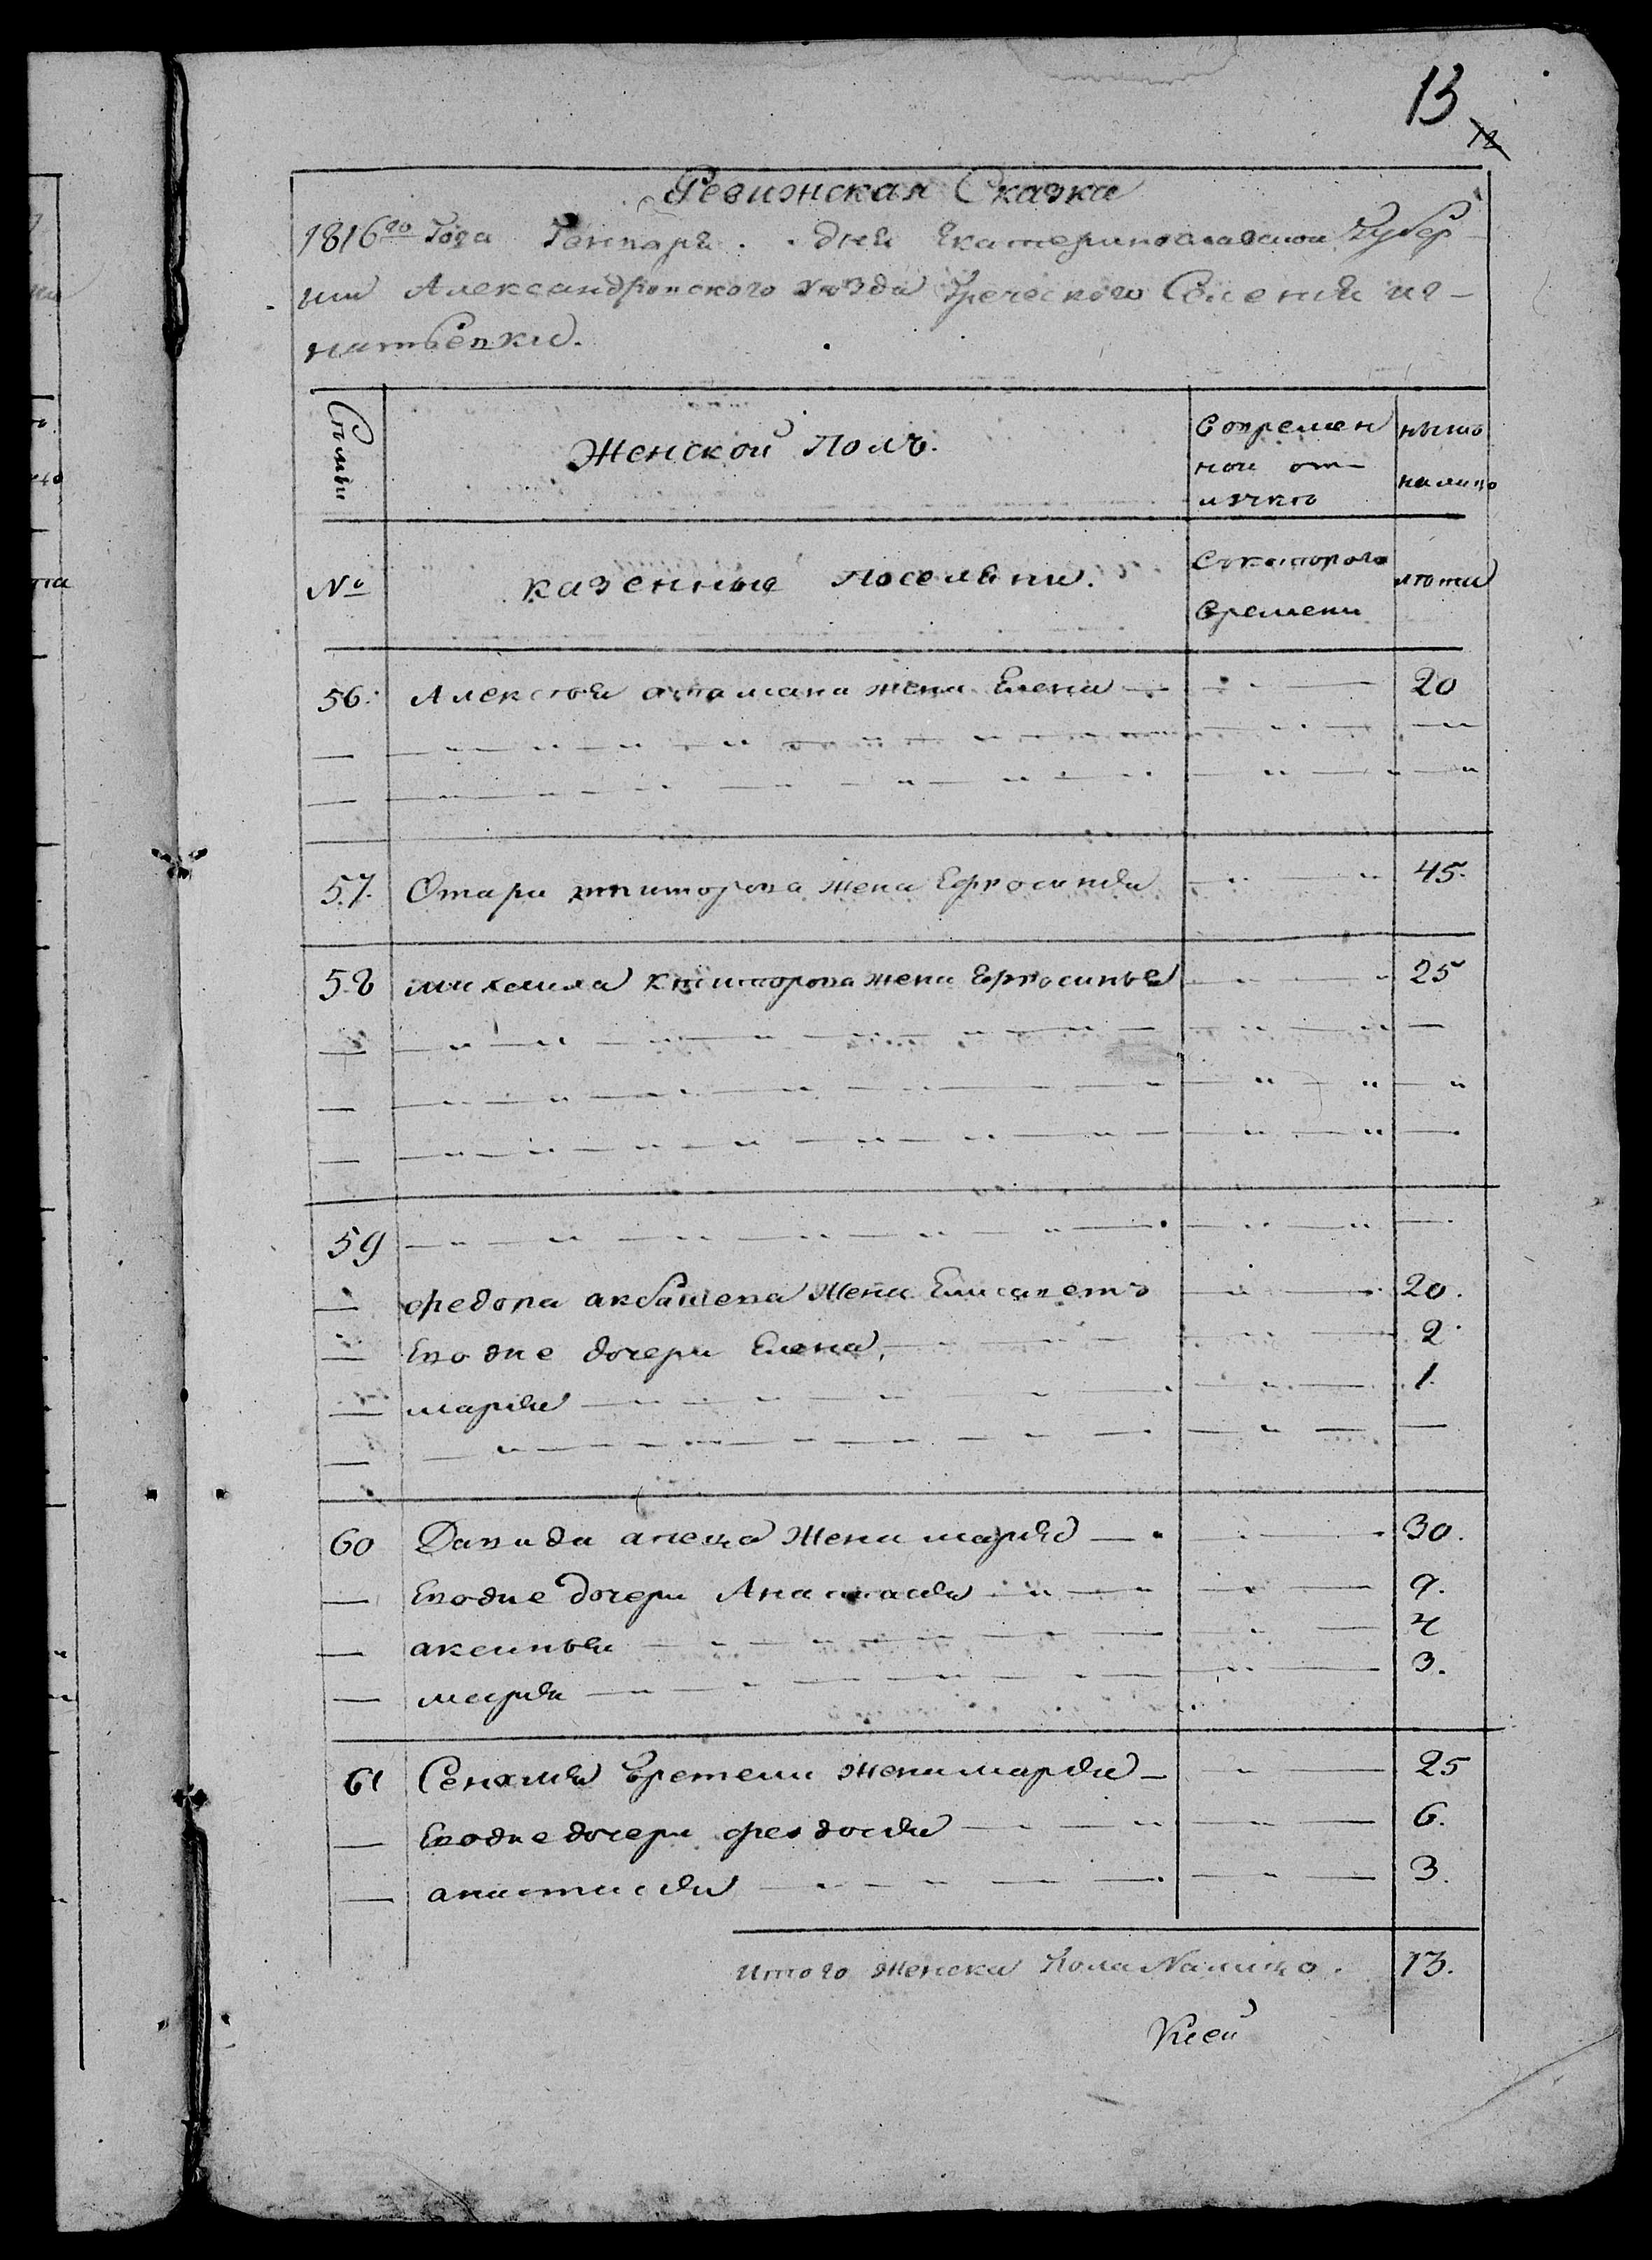 13
12
Ревижская Сказка
1816го Года Генваря . . дня Екатеринославской Губер-
нии Александровского уѣзда Греческого Селения иг-
натьевки.
Семьи
Женской Полъ.
Вовремен
ной от-
лучкѣ
нынѣ
налицо
№
казенные поселяни.
Скоторого
времени
лѣта
56. Алексѣя атамана жена Елена 20
57. Отара ктиторова жена Ефросиния 45.
58 михаила ктиторова жена Ефросинья 25
59
федора акбашева Жена Елисаветъ 20.
Еводне дочери Елена, 2.
мария 1.
60 Давида апеца Жена мария 30.
Еводне дочери Анастасия 9.
аксинья 4
мария 3.
61 Савелия Еретели жена мария 25
Еводне дочери феодосия 6.
анастасия 3.
итого женска пола Налицо. 13.